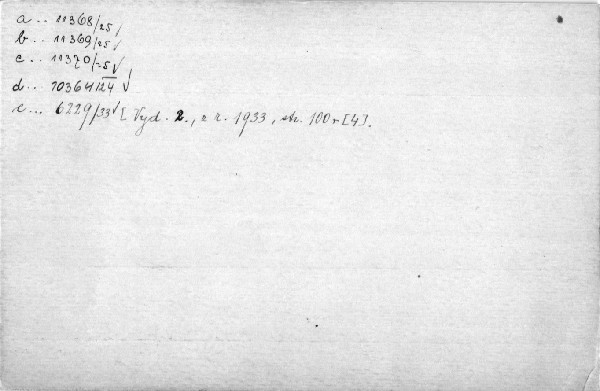 a .. 11368/25
b .. 11369/25
c ... 11370/25 √
d ... 10364/24 √
e ... 6229/33 √ [Vyd. 2., z r. 1933, str. 100 + [4].